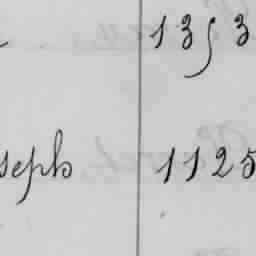 1353
seph 1125